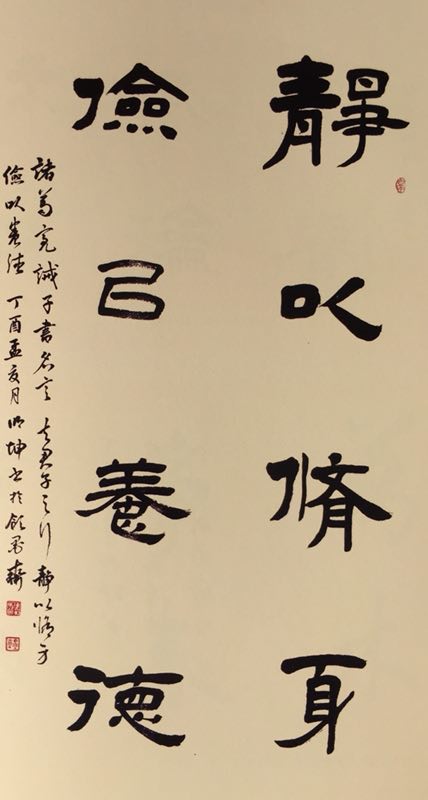 靜以脩身
儉㠯養德
諸葛亮誡子書名言 夫君子之行 靜以脩身
儉以養德 丁酉孟夏月 坤书於墨軒